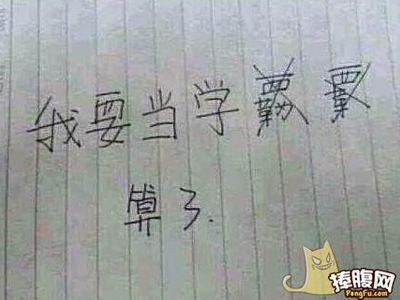 我要当学
算了.
捧腹网
PengFu.com